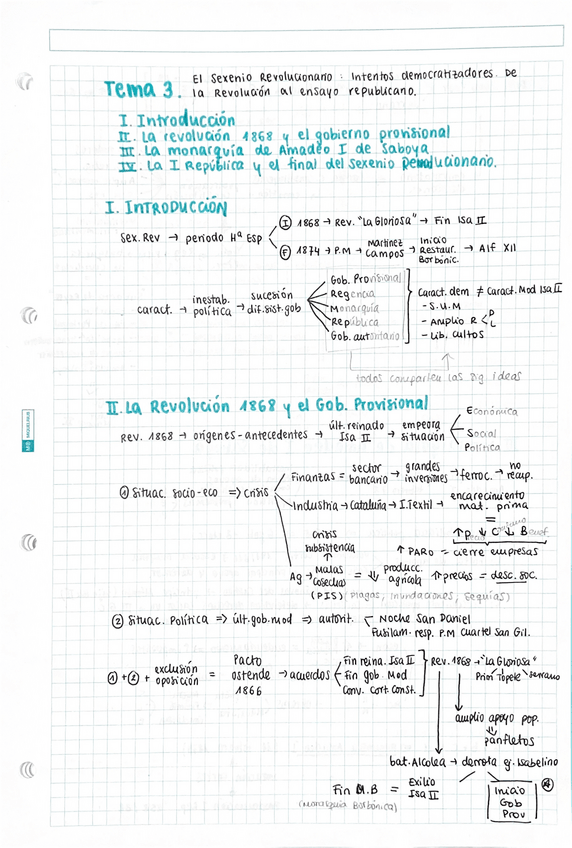 Tema 3. El Sexenio Revolucionario: Intentos democratizadores. De
la Revolución al ensayo republicano.
I. Introducción
II. La revolución 1868 y el gobierno provisional
III. La monarquía de Amadeo I de Saboya
IV. La I República y el final del Sexenio Revolucionario.
I. INTRODUCCIÓN
Sex. Rev → periodo Hª Esp
I 1868 → Rev. "La Gloriosa" → Fin Isa II
F 1874 → P.M → Martínez Campos → Inicio Restaur. Borbónic. → Alf XII
caract. → inestab. política → sucesión dif. sist. gob
Gob. Provisional
Regencia
Monarquía
República
Gob. autoritario
Caract. dem ≠ Caract. Mod Isa II
- S.U.M
- Amplio R < P L
- Lib. cultos
todos comparten las sig ideas
II. La Revolución 1868 y el Gob. Provisional
Rev. 1868 → orígenes - antecedentes → últ. reinado Isa II → empeora situación
Económica
Social
Política
① Situac. socio-eco => Crisis
Finanzas = sector bancario → grandes inversiones → ferroc. → no recup.
Industria → Cataluña → I. Textil → encarecimiento mat. prima
=
↑ P recio ↓ C onsumo ↓ B enef.
↑ PARO = cierre empresas
Crisis subsistencia
↑
Ag → Malas cosechas = ↓↓ producc. agrícola ↑ precios = desc. soc.
(PIS) (plagas, inundaciones, sequías)
② Situac. Política => últ. gob. mod => autorit.
Noche San Daniel
Fusilam. resp. P.M Cuartel San Gil.
① + ② + exclusión oposición = Pacto ostende 1866 → acuerdos
Fin reina. Isa II
Fin gob. Mod
Conv. Cort. Const.
Rev. 1868 → "La Gloriosa"
Prim Topete serrano
amplio apoyo pop.
panfletos
bat. Alcolea → derrota ej. Isabelino
Fin M.B = Exilio Isa II
(Monarquía Borbónica)
Inicio
Gob
Prov